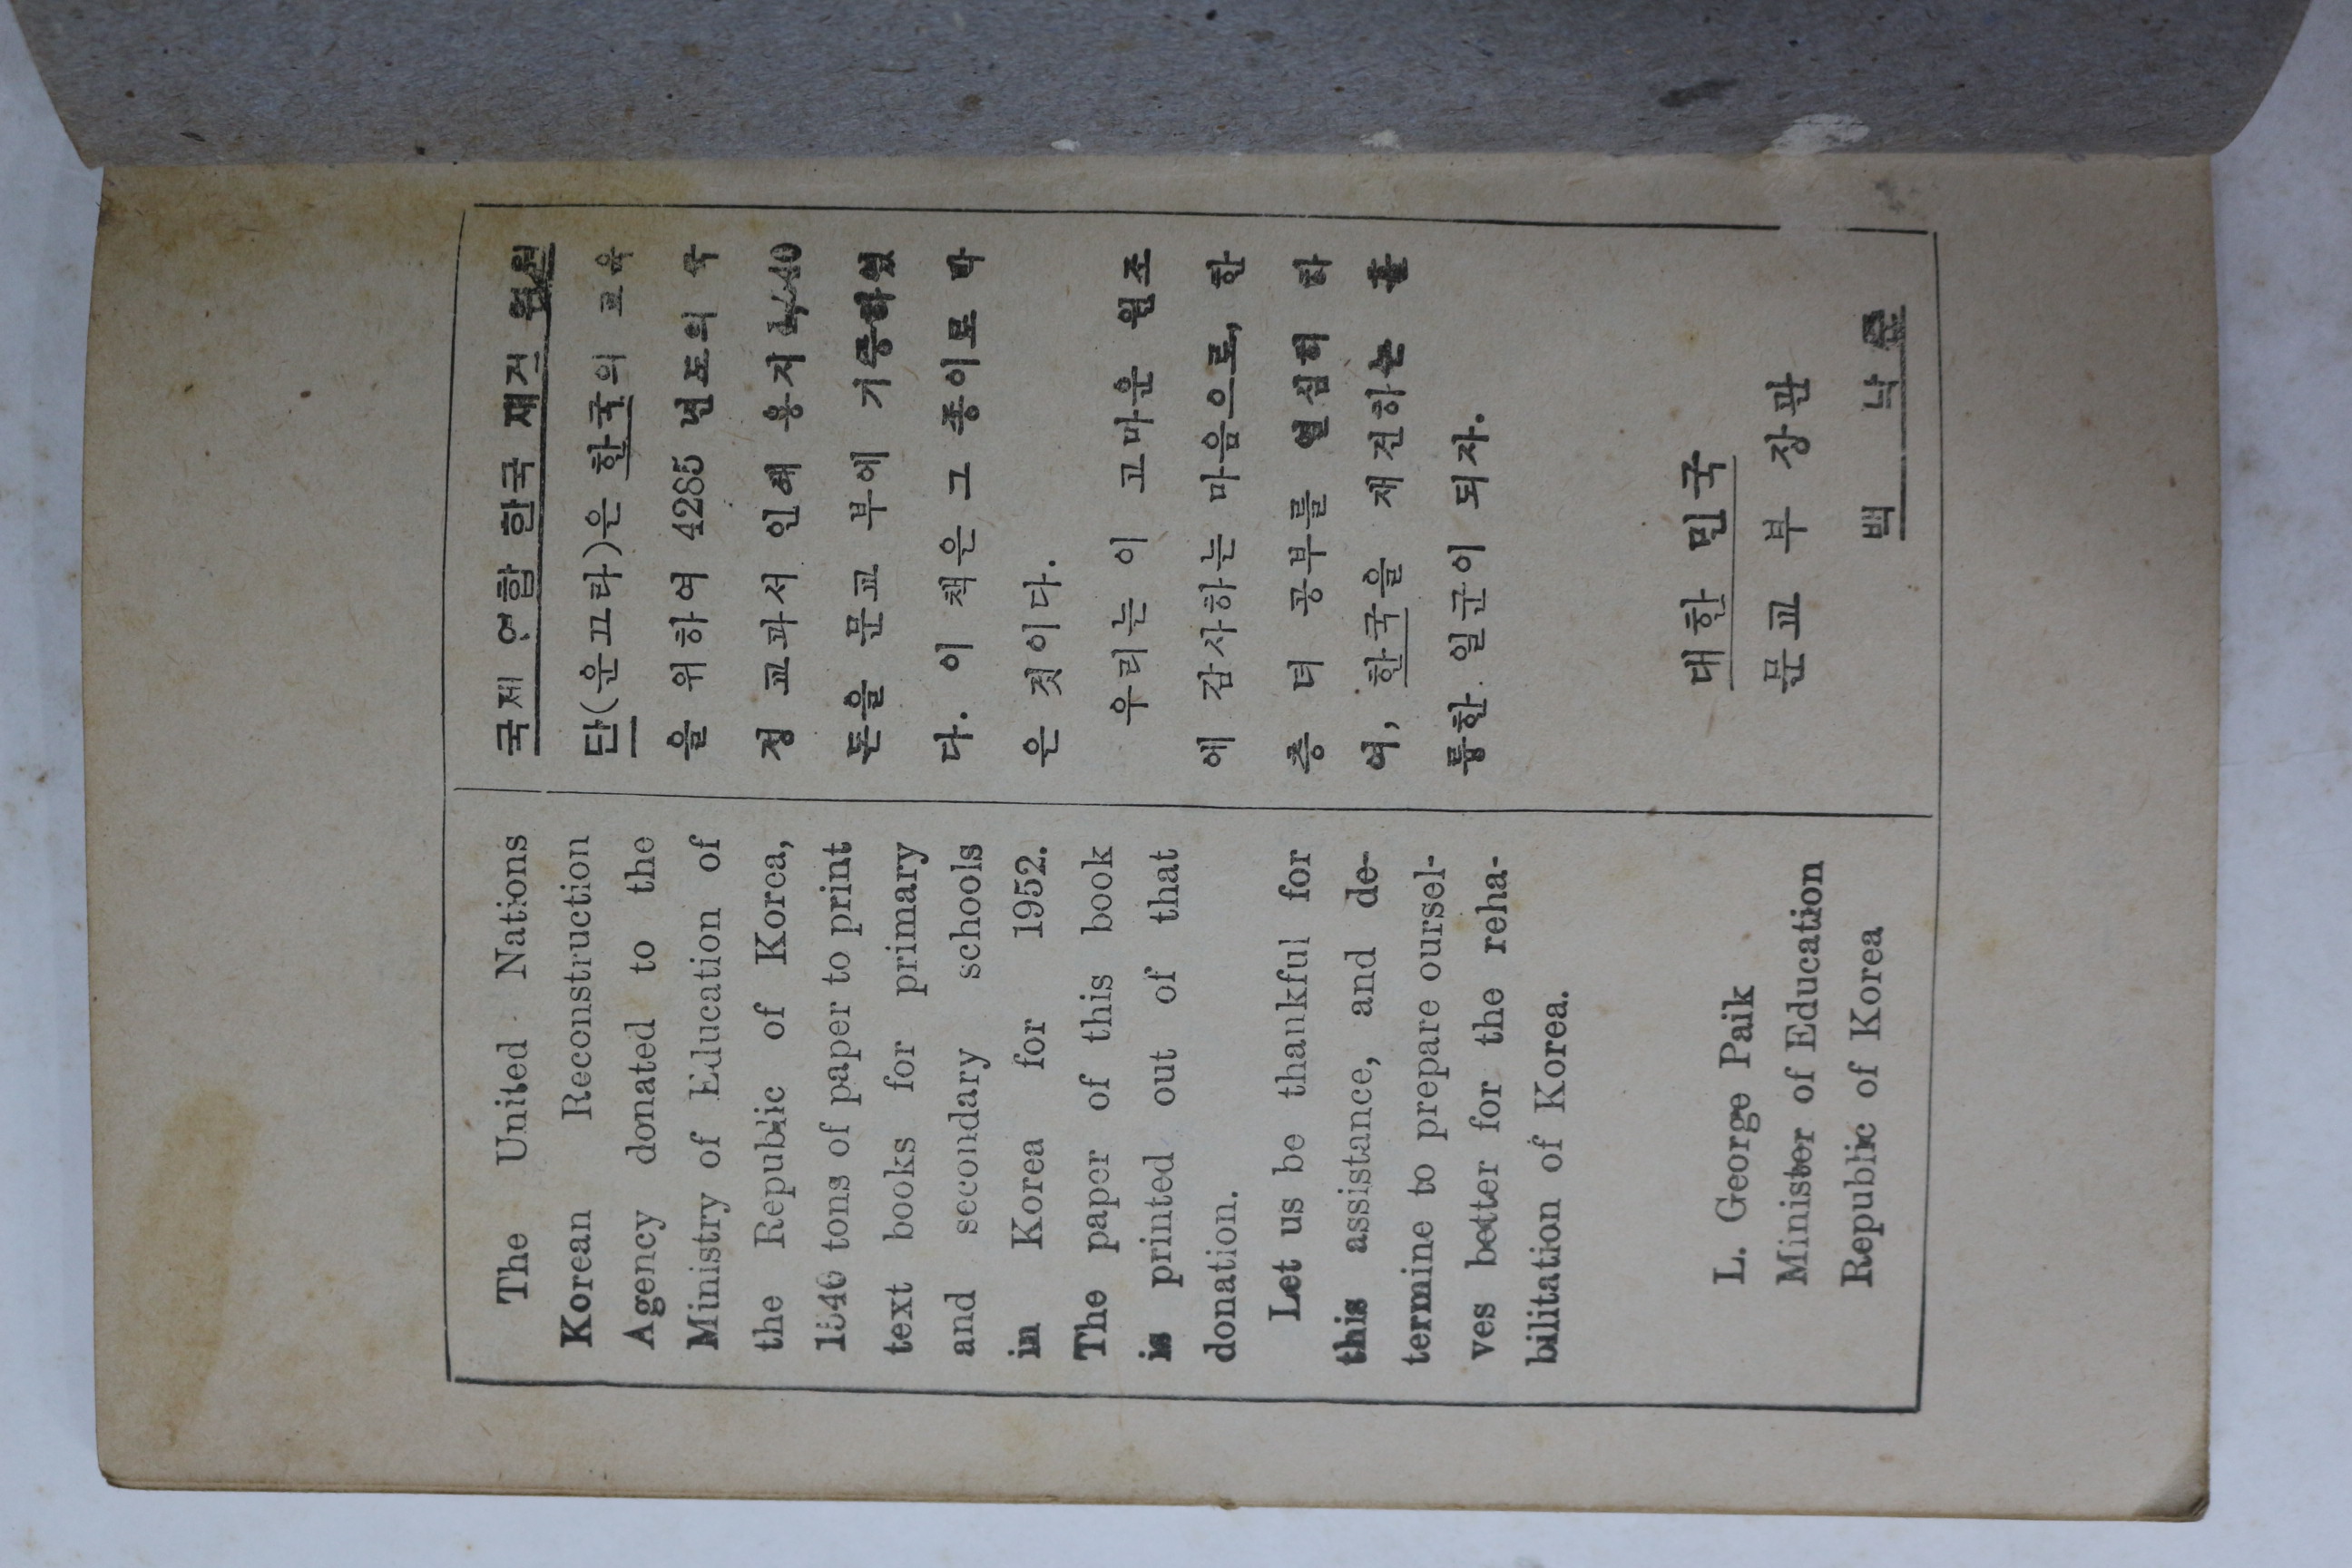 The United Nations
Korean Reconstruction
Agency donated to the
Ministry of Education of
the Republic of Korea,
1540 tons of paper to print
text books for primary
and secondary schools
in Korea for 1952.
The paper of this book
is printed out of that
donation.
Let us be thankful for
this assistance, and de-
termine to prepare oursel-
ves better for the reha-
bilitation of Korea.
L. George Paik
Minister of Education
Republic of Korea
국제 연합 한국 재건 위원
단(운끄라)은 한국의 교육
을 위하여 4285 년도의 국
정 교과서 인쇄 용지
톤을 문교 부에 기증하였
다. 이 책은 그 종이로 박
은 것이다.
우리는 이 고마운 원조
에 감사하는 마음으로, 한
층 더 공부를 열심히 하
여, 한국을 재건하는 훌
륭한 일군이 되자.
대한 민국
문교 부 장관
백 낙 준